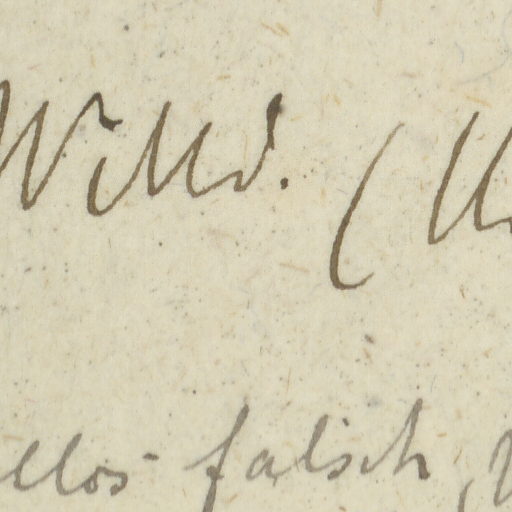 Willd. (
llos falsch,